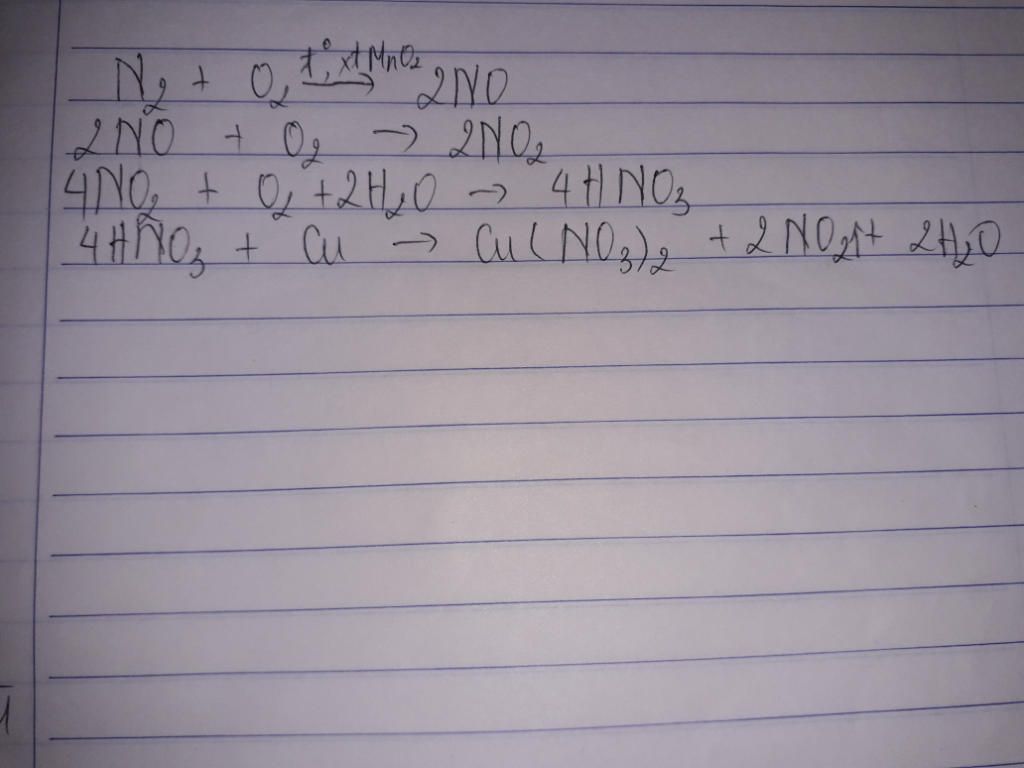 N₂ + O₂ →(t°, xt MnO₂) 2NO
2NO + O₂ → 2NO₂
4NO₂ + O₂ + 2H₂O → 4HNO₃
4HNO₃ + Cu → Cu(NO₃)₂ + 2NO₂↑ + 2H₂O
1